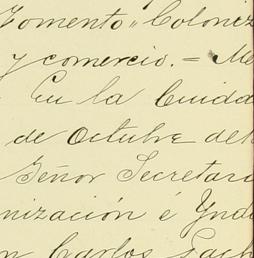 Fomento, Coloniz
y comercio. = Me
En la Ciuda
de Octubre del
Señor Secretari
nización é Yndu
n Carlos Pach